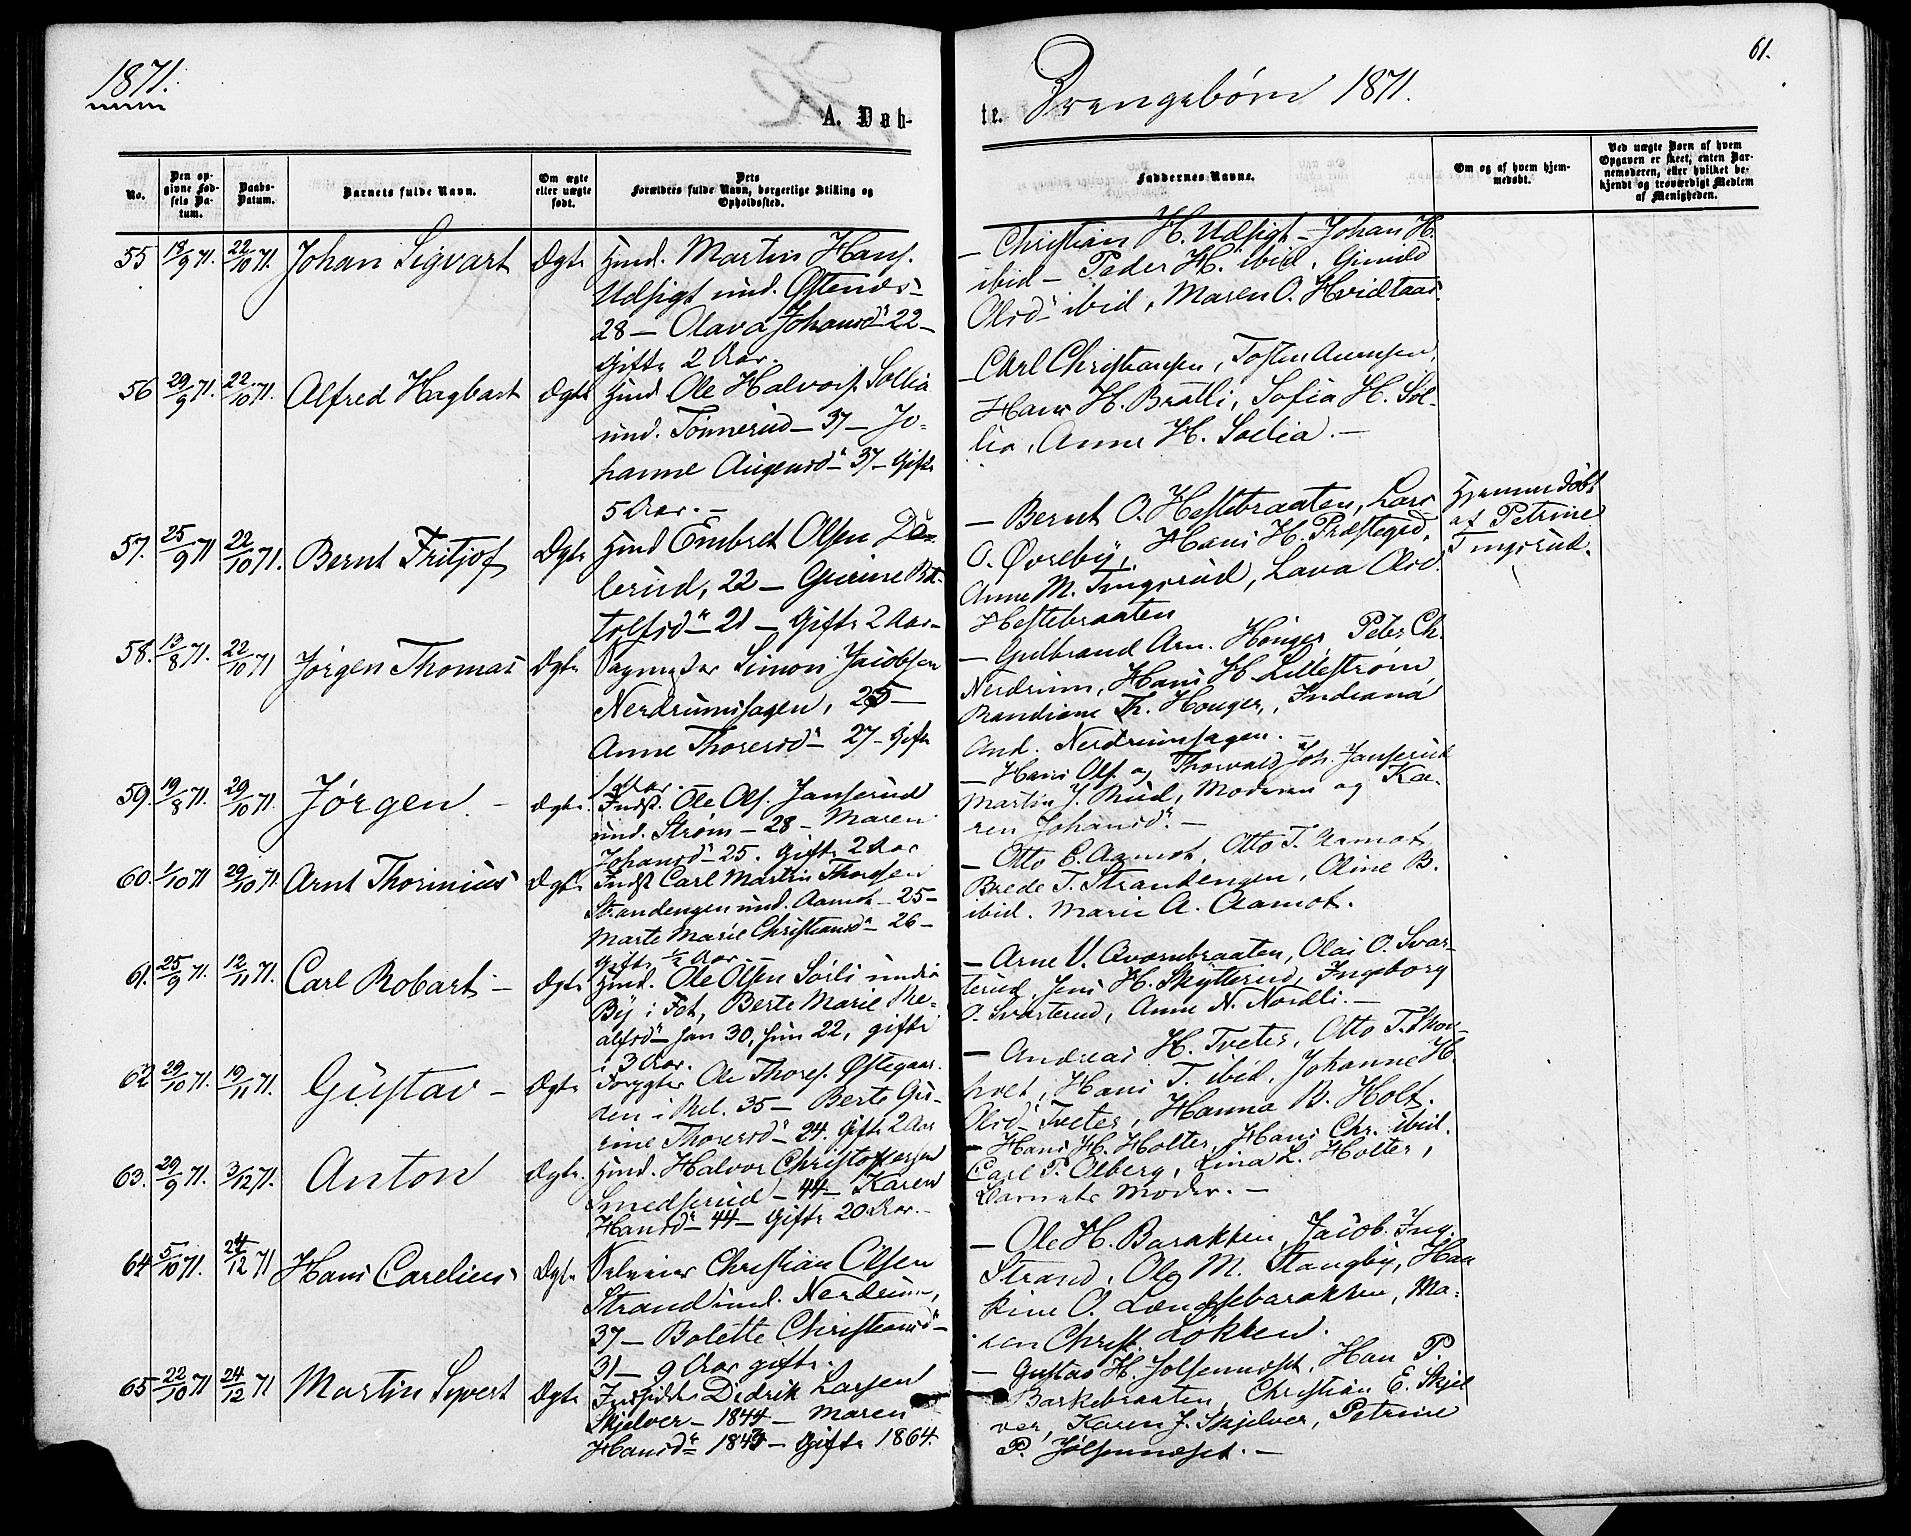 1871.
61.
A. Døb-
te. Drengebørn 1871.
No.
Den op-
givne Fød-
sels Da-
tum.
Daabs-
Datum.
Barnets fulde Navn.
Om ægte
eller uægte
født.
Dets
Forældres fulde Navn, borgerlige Stilling og
Opholdssted.
Faddernes Navne.
Om og af hvem hjem-
medøbt.
Ved uægte Børn af hvem
Opgaven er skeet, enten Bar-
nemoderen, eller hvilket be-
kjendt og troværdigt Medlem
af Menigheden.
55 18/9 71. 22/10 71. Johan Sigvart Ægte Husd. Martin Hans.
Udsigt und. Østenæs-
28 - Olava Johansd. 22 -
Gifte 2 Aar.
- Christian H. Udsigt - Johan H.
ibid - Peder H. ibid, Gunild
Olsd. ibid, Maren O. Hvidtaas.
56 29/9 71. 22/10 71. Alfred Hagbart Ægte Husd Ole Halvors. Sollia
und. Tønnerud - 37 - Jo-
hanne Augensd. - 37 - Gifte
5 Aar. -
- Carl Christiansen, Tosten Aurensen,
Hans H. Bratli, Sofia H. Sol-
lia, Anne H. Sollia. -
57. 25/9 71 22/10 71. Bernt Fritjof Ægte Husd Embret Olsen Da-
lerud, 22 - Gurine Bot-
tolfsd. - 21 - Gifte 2 Aar -
- Bernt O. Hestebraaten, Lars
O. Øvreby, Hans H. Præstegrd,
Anne M. Tingsrud, Lava Olsd.
Hestebraaten
Hjemmedøbt
af Petrine
Tingsrud.
58. 13/8 71. 22/10 71 Jørgen Thomas Ægte Sagmester Simon Jacobsen
Nerdrumsagen, 25 -
Anne Thoresd. - 27 - Gifte
1 Aar.
- Gulbrand Arn. Houger, Peter Ch.
Nerdrum, Hans H Lillestrøm
Brandiane Th. Houger, Indiana
And. Nerdrumsagen. -
59. 19/8 71. 29/10 71. Jørgen - Ægte. Indst. Ole Ols. Janserud
und. Strøm - 28 - Maren
Johansd. - 25. Gifte 2 Aar
- Hans Ols. og Thorvald Joh. Janserud
Martin J. Rud, Moderen og Ka-
ren Johansd. -
60. 1/10 71 29/10 71. Arnt Thorinius Ægte Indst Carl Martin Thorsen
Strandengen und. Aamot - 25 -
Marte Marie Christiansd. - 26 -
Gifte 1/2 Aar. -
- Otto E. Aamot, Otto T. Aamot
Brede T. Strandengen, Oline B.
ibid. Marie A. Aamot.
61. 25/9 71. 12/11 71. Carl Robart - Ægte Husd. Ole Olsen Sørli under
By i Fet, Berte Marie Re-
alfsd. - han 30, hun 22, gifte
i 3 Aar.
- Arne V. Qvernbraaten, Olai O. Svar-
terud, Jens H. Skytterud, Ingeborg
O. Svarterud, Anne N. Nordli. -
62 29/10 71. 19/11 71. Gustav - Ægte Forpgter Ole Thores. Østegaar-
den i Rel. 35 - Berte Gu-
rine Thoresd. - 24. Gifte 2 Aar
- Andreas H. Tveter, Otto T.
Hans T. ibid, Johanne H.
Olsd. Tveter, Hanna B. Holt.
63. 29/9 71. 3/12 71. Anton Ægte. Husd. Halvor Christoffersen
Smedserud - 44 - Karen
Hansd. - 44 - Gifte 20 Aar. -
- Hans H. Holter, Hans Chr. ibid.
Carl P. Olberg, Lina L. Holter,
Barnets Moder. -
64 5/10 71. 24/12 71 Hans Carelius Ægte Selveier Christian Olsen
Strand und. Nerdrum,
37 - Bolette Christiansd -
31 - 9 Aar gifte.
- Ole H. Barakken, Jacob Ing.
Strand, Ole M. Stangby, Han
kine O. Lændsebarakken, Ma-
ren Christ. Løkken.
65 22/10 71 24/12 71 Martin Syvert Ægte Indsidder Didrik Larsen
Skjelver - 1844 - Maren
Hansd. 1843 - Gifte 1864.
- Gustav H. Jølsennæset, Han P.
Barkebraaten, Christian E. Skjel
ver, Karen J. Skjelver, Petrine
P. Jølsennæset. -